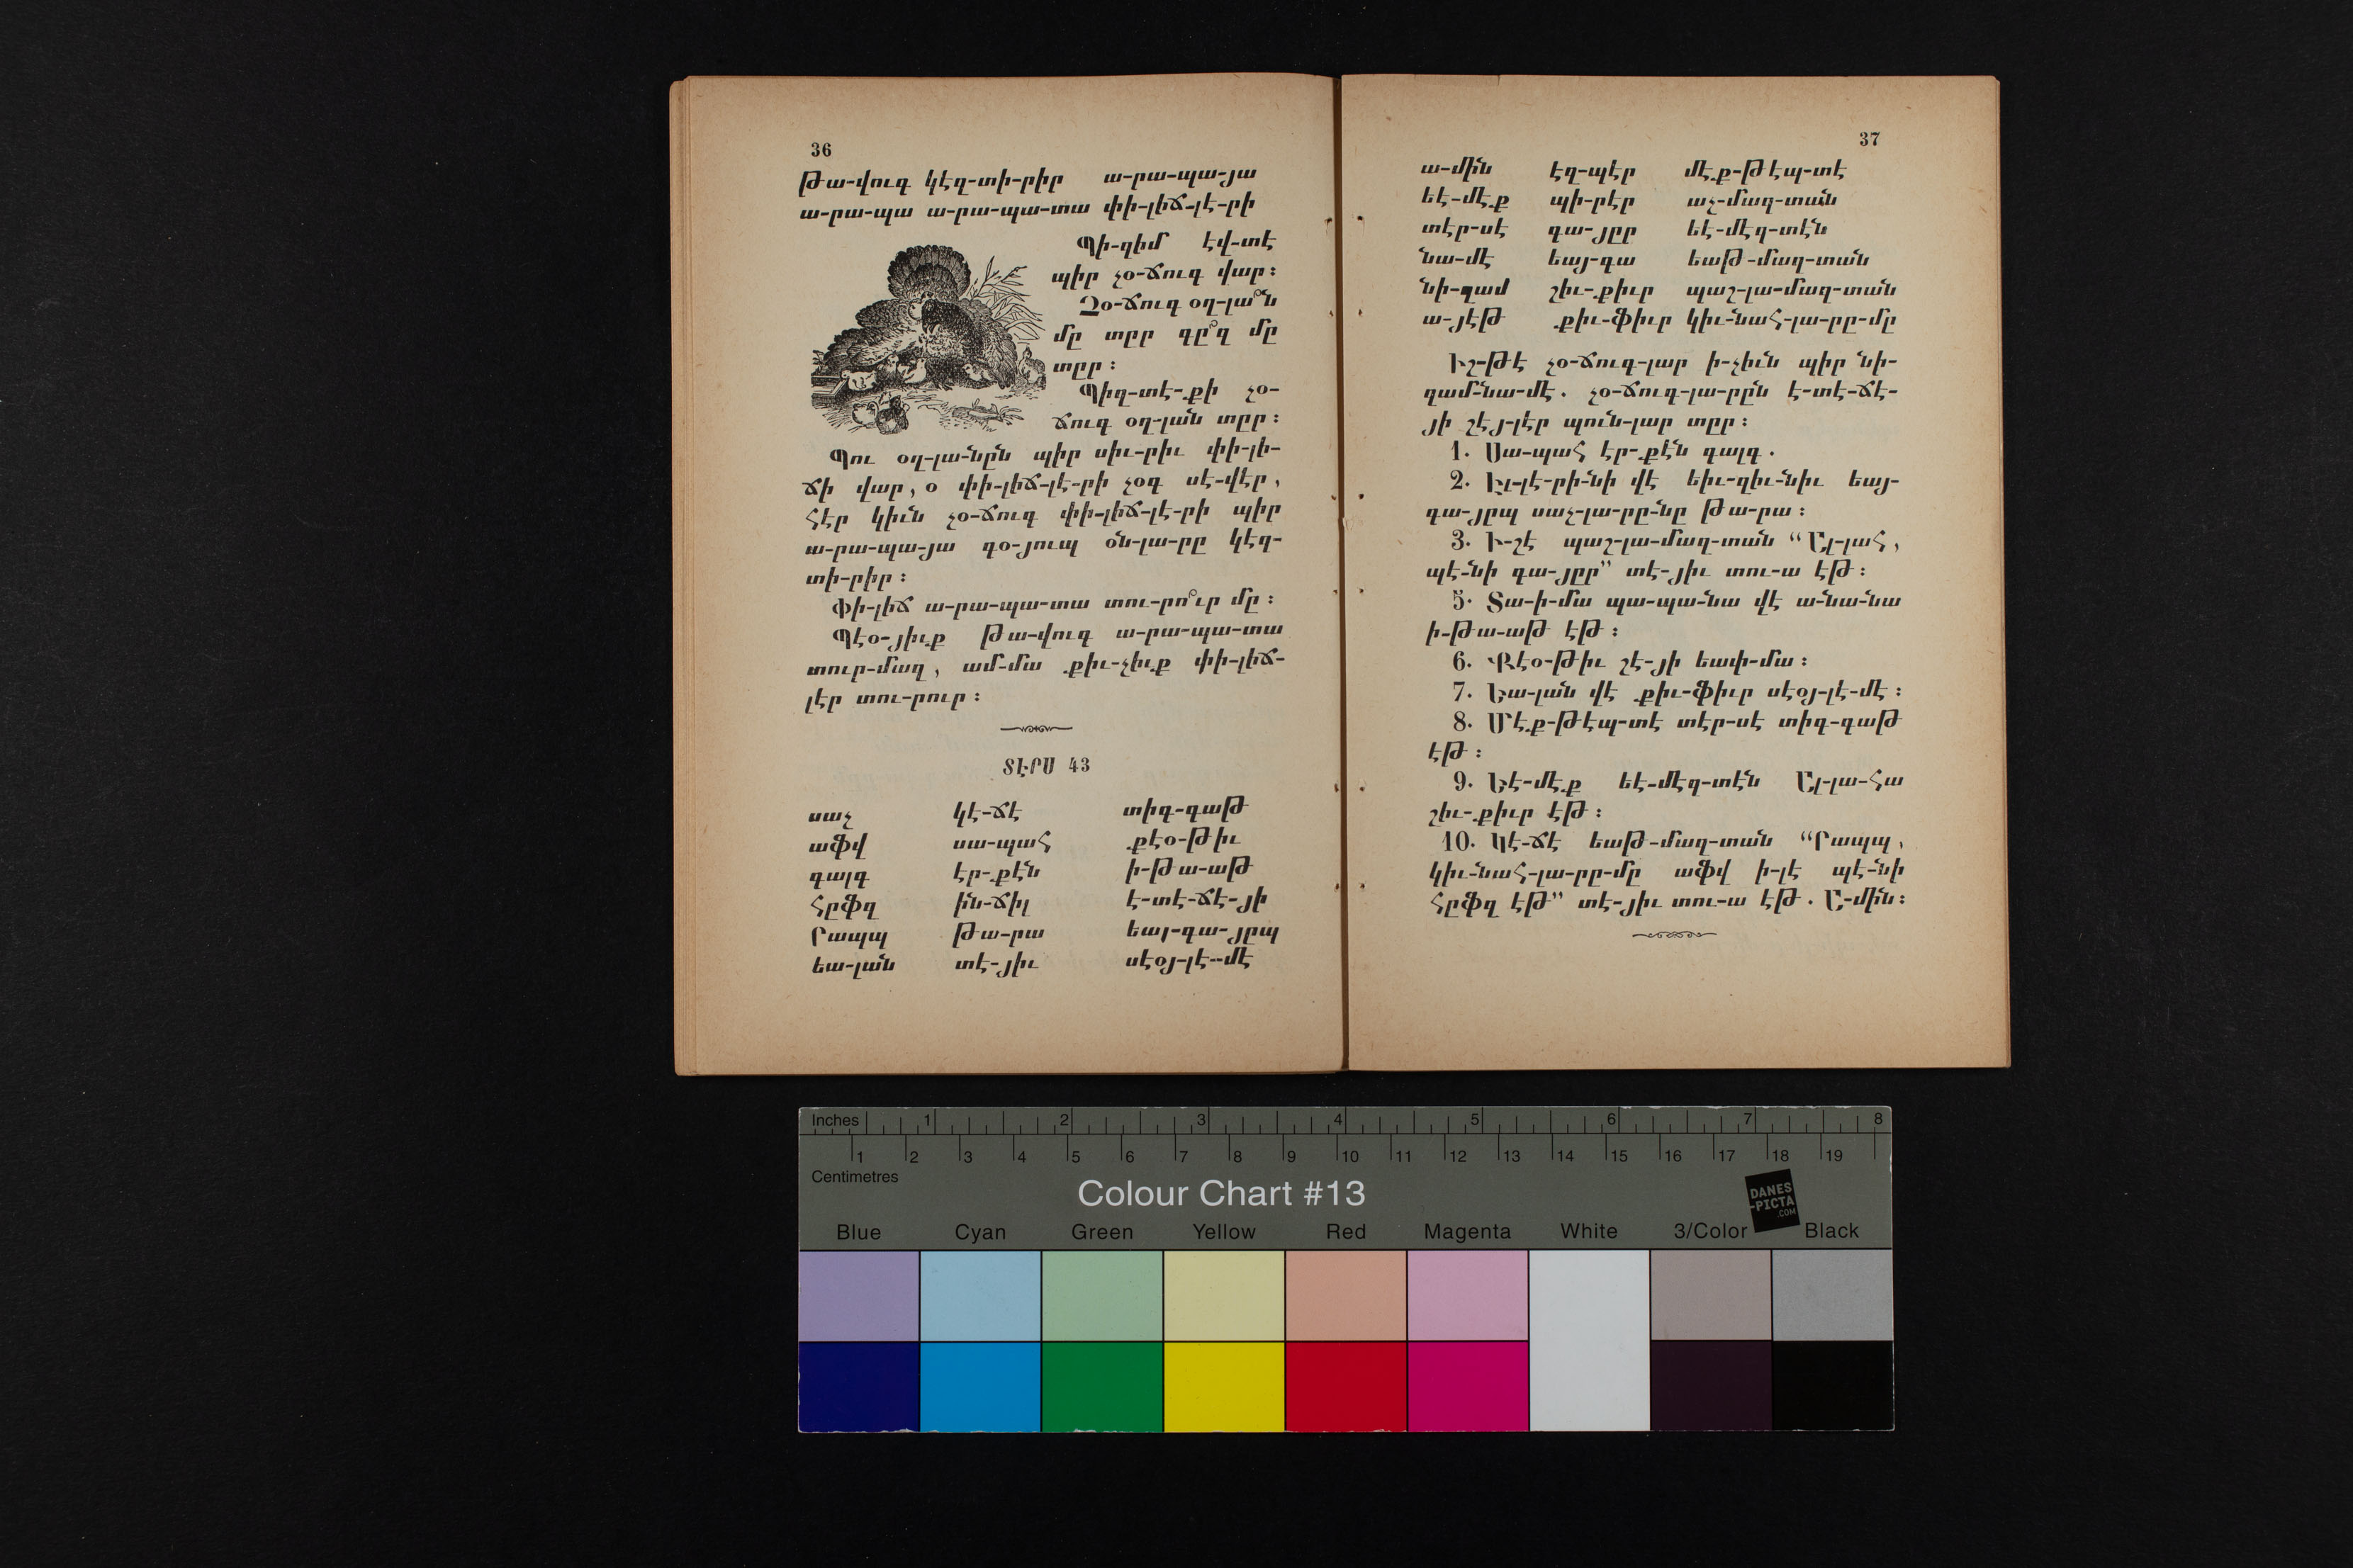 36
թա-վուգ կէզ-տի-րիր ա-րա-պա-յա
ա-րա-պա ա-րա-պա-տա փի-լիճ-լէ-րի
Պի-զիմ էվ-տէ
պիր չօ-ճուգ վար։
Չօ-ճուգ օղ-լա՞ն
մը տըր գը՞զ մը
տըր։
Պիզ-տէ-քի չօ-
ճուգ օղ-լան տըր։
Պու օղ-լա-նըն պիր սիւ-րիւ փի-լի-
ճի վար, օ փի-լիճ-լէ-րի չօգ սէ-վէր,
հէր կիւն չօ-ճուգ փի-լիճ-լէ-րի պիր
ա-րա-պա-յա գօ-յուպ օն-լա-րը կէզ-
տի-րիր։
Փի-լիճ ա-րա-պա-տա տու-րո՞ւր մը։
Պէօ-յիւք թա-վուգ ա-րա-պա-տա
տուր-մազ, ամ-մա քիւ-չիւք փի-լիճ-
լէր տու-րուր։
ՏԷՐՍ 43
սաչ կէ-ճէ տիգ-գաթ
աֆվ սա-պահ քէօ-թիւ
գալգ էր-քէն ի-թա-աթ
հըֆզ ին-ճիլ է-տէ-ճէ-յի
Րապպ թա-րա եայ-գա-յըպ
եա-լան տէ-յիւ սէօյ-լէ-մէ
37
ա-մին էղ-պէր մէք-թէպ-տէ
եէ-մէք պի-րէր աչ-մազ-տան
տէր-սէ գա-յըր եէ-մէզ-տէն
նա-մէ եայ-գա եաթ-մազ-տան
նի-զամ շիւ-քիւր պաշ-լա-մազ-տան
ա-յէթ քիւ-ֆիւր կիւ-նահ-լա-րը-մը
Իշ-թէ չօ-ճուգ-լար ի-չիւն պիր նի-
զամ-նա-մէ. չօ-ճուգ-լա-րըն է-տէ-ճէ-
յի շէյ-լէր պուն-լար տըր։
1. Սա-պահ էր-քէն գալգ.
2. Էլ-լէ-րի-նի վէ եիւ-զիւ-նիւ եայ-
գա-յըպ սաչ-լա-րը-նը թա-րա։
3. Ի-շէ պաշ-լա-մազ-տան “Ալ-լահ,
պէ-նի գա-յըր” տէ-յիւ տու-ա էթ։
5. Տա-ի-մա պա-պա-նա վէ ա-նա-նա
ի-թա-աթ էթ։
6. Քէօ-թիւ շէ-յի եափ-մա։
7. Եա-լան վէ քիւ-ֆիւր սէօյ-լէ-մէ։
8. Մէք-թէպ-տէ տէր-սէ տիգ-գաթ
էթ։
9. Եէ-մէք եէ-մէզ-տէն Ալ-լա-հա
շիւ-քիւր էթ։
10. Կէ-ճէ եաթ-մազ-տան “Րապպ,
կիւ-նահ-լա-րը-մը աֆվ ի-լէ պէ-նի
հըֆզ էթ” տէ-յիւ տու-ա էթ. Ա-մին։
Inches 1 2 3 4 5 6 7 8
1 2 3 4 5 6 7 8 9 10 11 12 13 14 15 16 17 18 19
Centimetres
Colour Chart #13
DANES
-PICTA
.COM
Blue Cyan Green Yellow Red Magenta White 3/Color Black